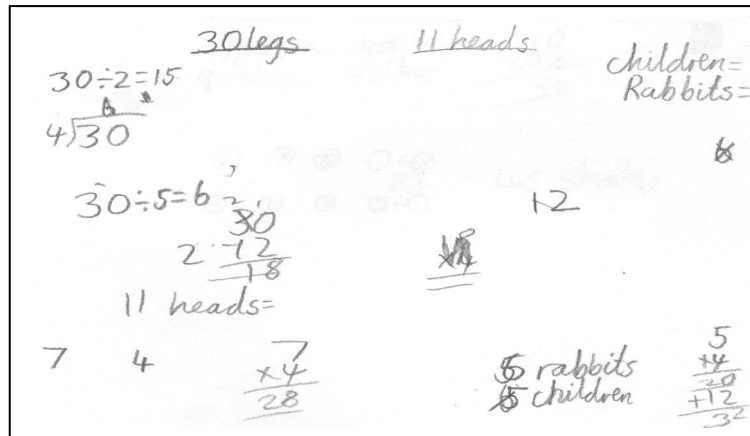 30 legs 11 heads
children=
Rabbits=
30÷2=15
4)30
30÷5=6
30
2 -12
18
12
11 heads=
7 4
7
×4
28
rabbits
children
5
×4
20
+12
32